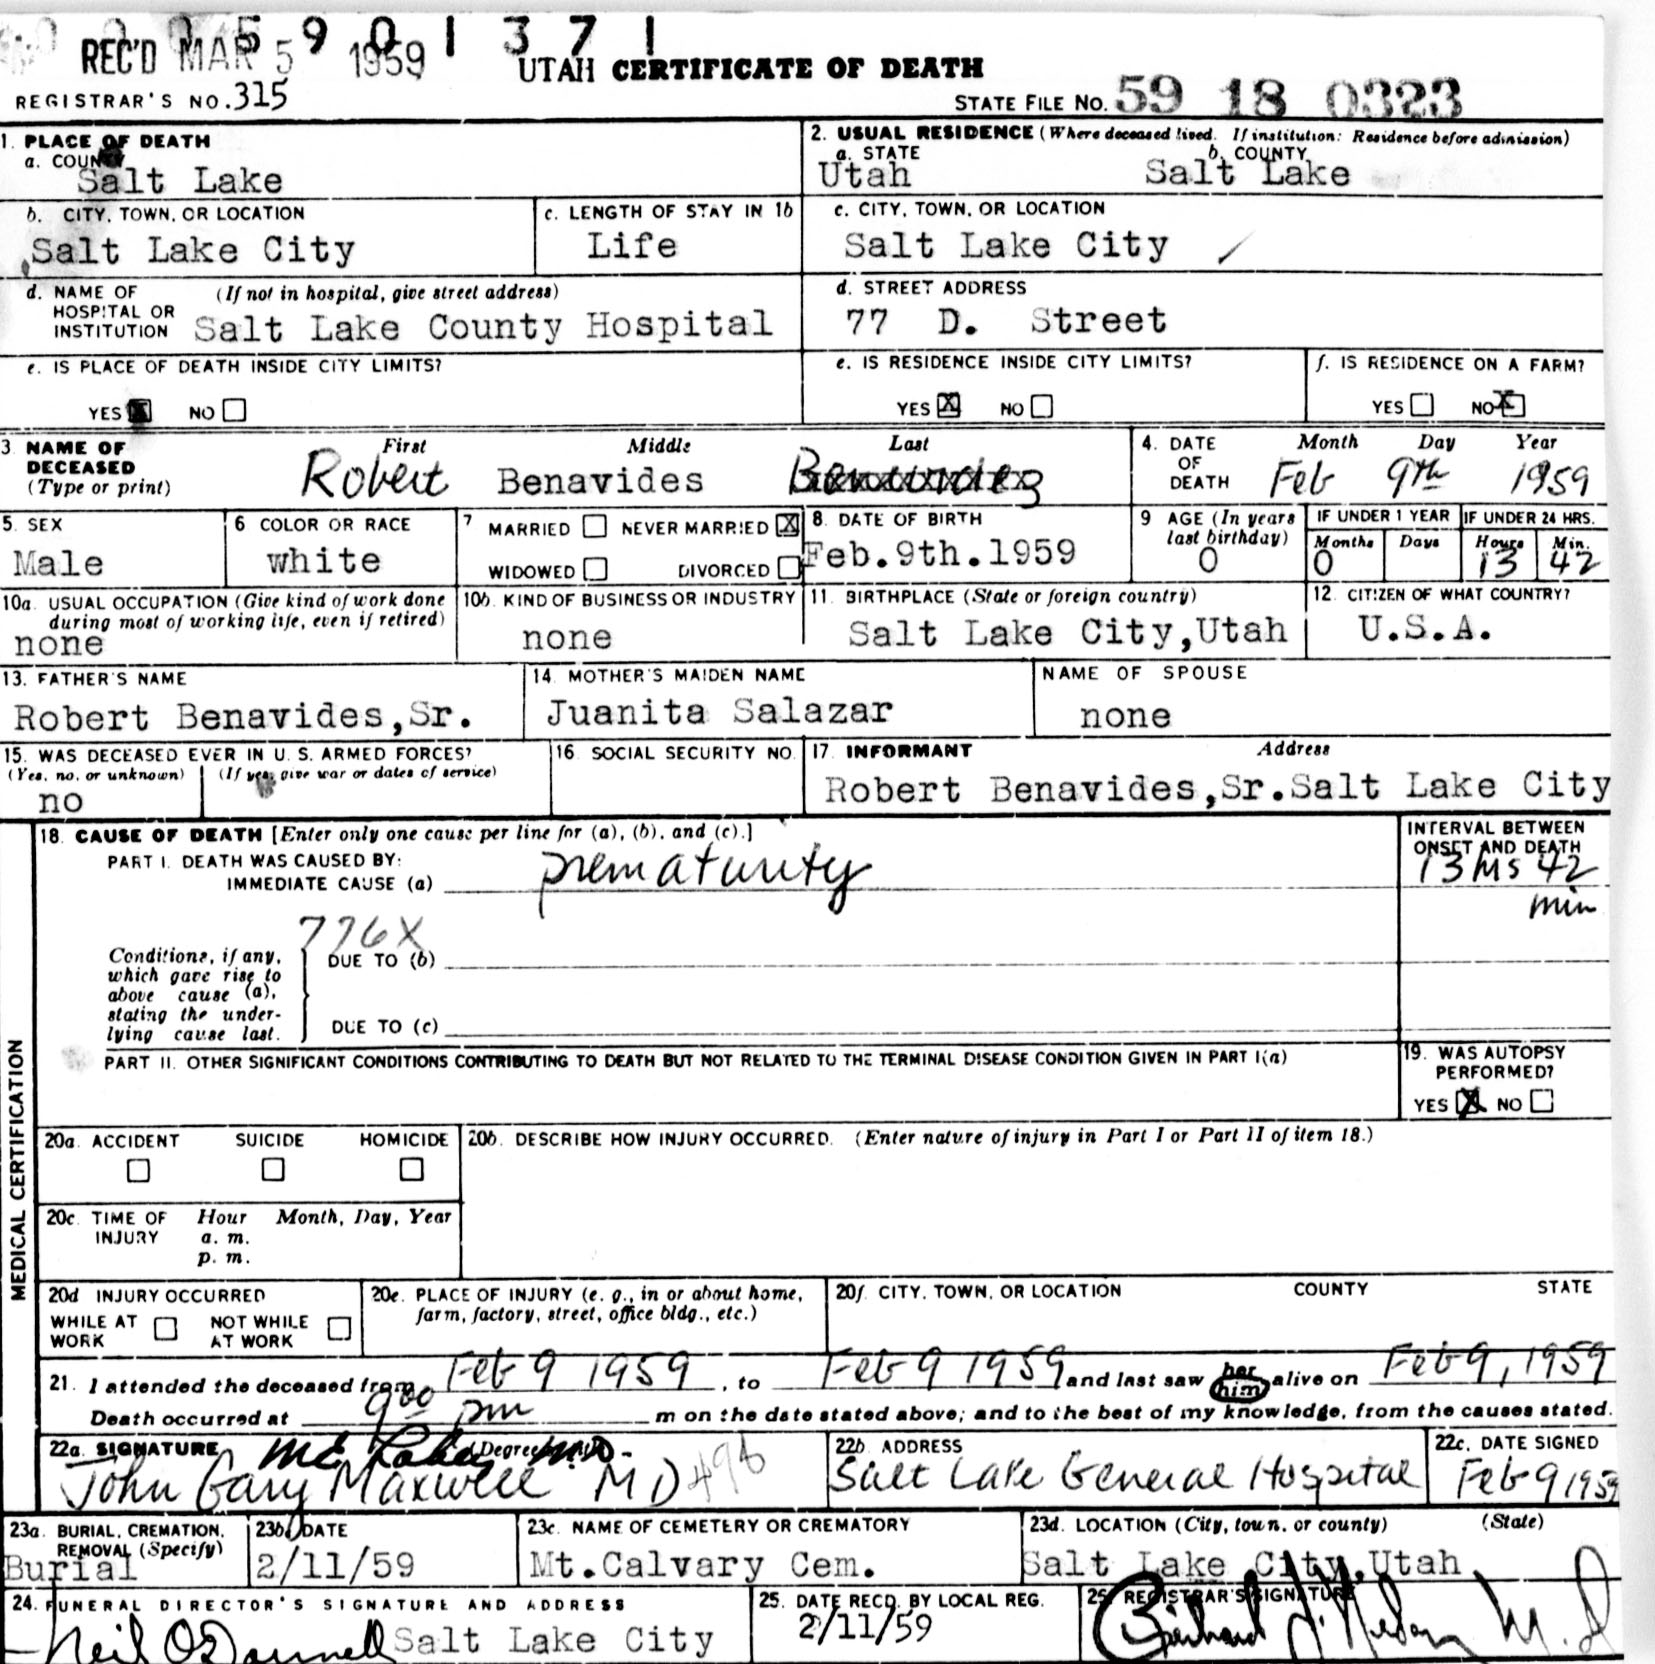 0005901371
REC'D MAR 5 1959
UTAH CERTIFICATE OF DEATH
REGISTRAR'S NO. 315
STATE FILE NO. 59 18 0323
1. PLACE OF DEATH
a. COUNTY
Salt Lake
2. USUAL RESIDENCE (Where deceased lived. If institution: Residence before admission)
a. STATE b. COUNTY
Utah Salt Lake
b. CITY, TOWN, OR LOCATION
Salt Lake City
c. LENGTH OF STAY IN 1b
Life
c. CITY, TOWN, OR LOCATION
Salt Lake City
d. NAME OF HOSPITAL OR INSTITUTION (If not in hospital, give street address)
Salt Lake County Hospital
d. STREET ADDRESS
77 D. Street
e. IS PLACE OF DEATH INSIDE CITY LIMITS?
YES X NO
e. IS RESIDENCE INSIDE CITY LIMITS?
YES X NO
f. IS RESIDENCE ON A FARM?
YES NO X
3 NAME OF DECEASED (Type or print)
First Middle Last
Robert Benavides
4. DATE OF DEATH
Month Day Year
Feb 9th 1959
5. SEX
Male
6 COLOR OR RACE
white
7 MARRIED NEVER MARRIED X
WIDOWED DIVORCED
8. DATE OF BIRTH
Feb.9th.1959
9 AGE (In years last birthday)
0
IF UNDER 1 YEAR
Months Days
0
IF UNDER 24 HRS.
Hours Min.
13 42
10a. USUAL OCCUPATION (Give kind of work done during most of working life, even if retired)
none
10b. KIND OF BUSINESS OR INDUSTRY
none
11. BIRTHPLACE (State or foreign country)
Salt Lake City,Utah
12. CITIZEN OF WHAT COUNTRY?
U.S.A.
13. FATHER'S NAME
Robert Benavides,Sr.
14. MOTHER'S MAIDEN NAME
Juanita Salazar
NAME OF SPOUSE
none
15. WAS DECEASED EVER IN U. S. ARMED FORCES?
(Yes, no, or unknown) (If yes, give war or dates of service)
no
16. SOCIAL SECURITY NO.
17. INFORMANT Address
Robert Benavides,Sr.Salt Lake City
MEDICAL CERTIFICATION
18. CAUSE OF DEATH [Enter only one cause per line for (a), (b), and (c).]
PART I. DEATH WAS CAUSED BY:
IMMEDIATE CAUSE (a) prematurity
INTERVAL BETWEEN ONSET AND DEATH
13 hrs 42 min
776X
Conditions, if any, which gave rise to above cause (a), stating the underlying cause last.
DUE TO (b)
DUE TO (c)
PART II. OTHER SIGNIFICANT CONDITIONS CONTRIBUTING TO DEATH BUT NOT RELATED TO THE TERMINAL DISEASE CONDITION GIVEN IN PART I(a)
19. WAS AUTOPSY PERFORMED?
YES X NO
20a. ACCIDENT SUICIDE HOMICIDE
20b. DESCRIBE HOW INJURY OCCURRED. (Enter nature of injury in Part I or Part II of item 18.)
20c. TIME OF INJURY Hour Month, Day, Year
a. m.
p. m.
20d INJURY OCCURRED
WHILE AT WORK NOT WHILE AT WORK
20e. PLACE OF INJURY (e. g., in or about home, farm, factory, street, office bldg., etc.)
20f. CITY, TOWN, OR LOCATION COUNTY STATE
21. I attended the deceased from Feb 9 1959, to Feb 9 1959 and last saw her him alive on Feb 9, 1959
Death occurred at 9 00 pm m on the date stated above; and to the best of my knowledge, from the causes stated.
22a. SIGNATURE (Degree
John Gary Maxwell MD
22b ADDRESS
Salt Lake General Hospital
22c. DATE SIGNED
Feb 9 1959
23a. BURIAL, CREMATION, REMOVAL (Specify)
Burial
23b. DATE
2/11/59
23c. NAME OF CEMETERY OR CREMATORY
Mt.Calvary Cem.
23d. LOCATION (City, town, or county) (State)
Salt Lake City,Utah
24. FUNERAL DIRECTOR'S SIGNATURE AND ADDRESS
Neil O'Donnell Salt Lake City
25. DATE RECD. BY LOCAL REG.
2/11/59
26. REGISTRAR'S SIGNATURE